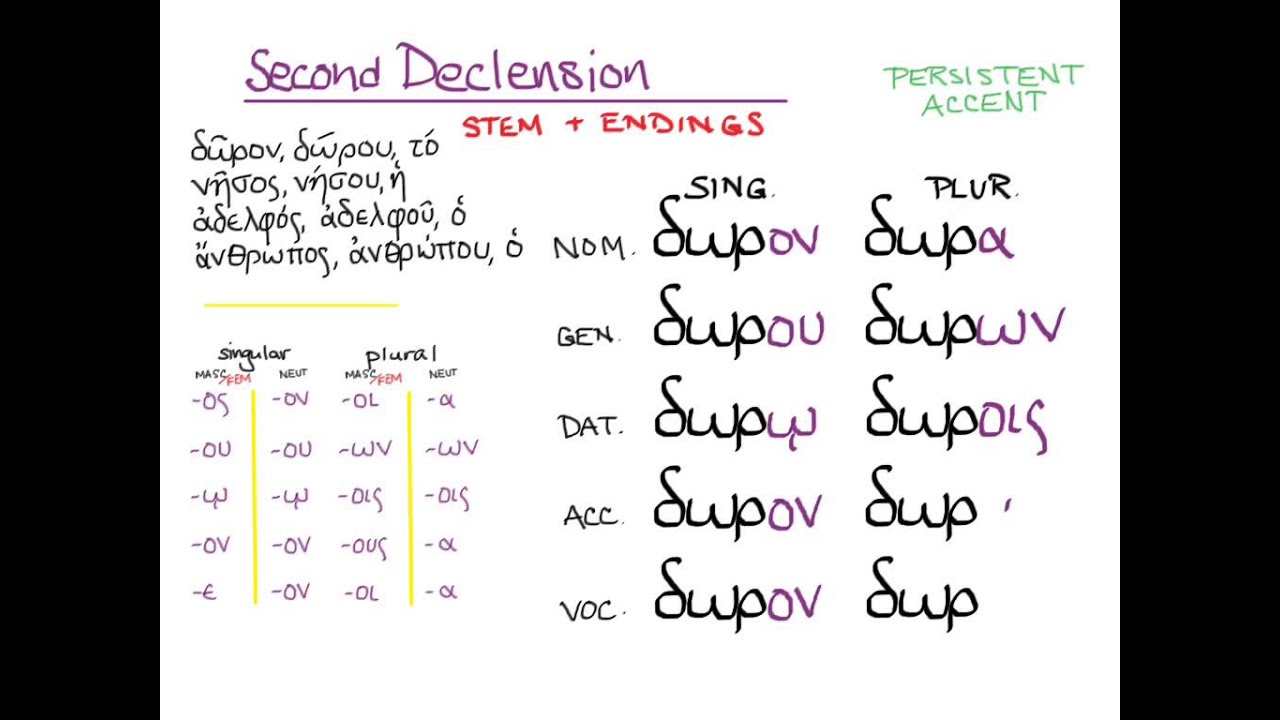 Second Declension
PERSISTENT
ACCENT
STEM + ENDINGS
δῶρον, δώρου, τό
νῆσος, νήσου, ἡ
ἀδελφός, ἀδελφοῦ, ὁ
ἄνθρωπος, ἀνθρώπου, ὁ
singular plural
MASC/FEM NEUT MASC/FEM NEUT
-ος -ον -οι -α
-ου -ου -ων -ων
-ῳ -ῳ -οις -οις
-ον -ον -ους -α
-ε -ον -οι -α
SING. PLUR.
NOM. δωρον δωρα
GEN. δωρου δωρων
DAT. δωρῳ δωροις
ACC. δωρον δωρ
VOC. δωρον δωρ